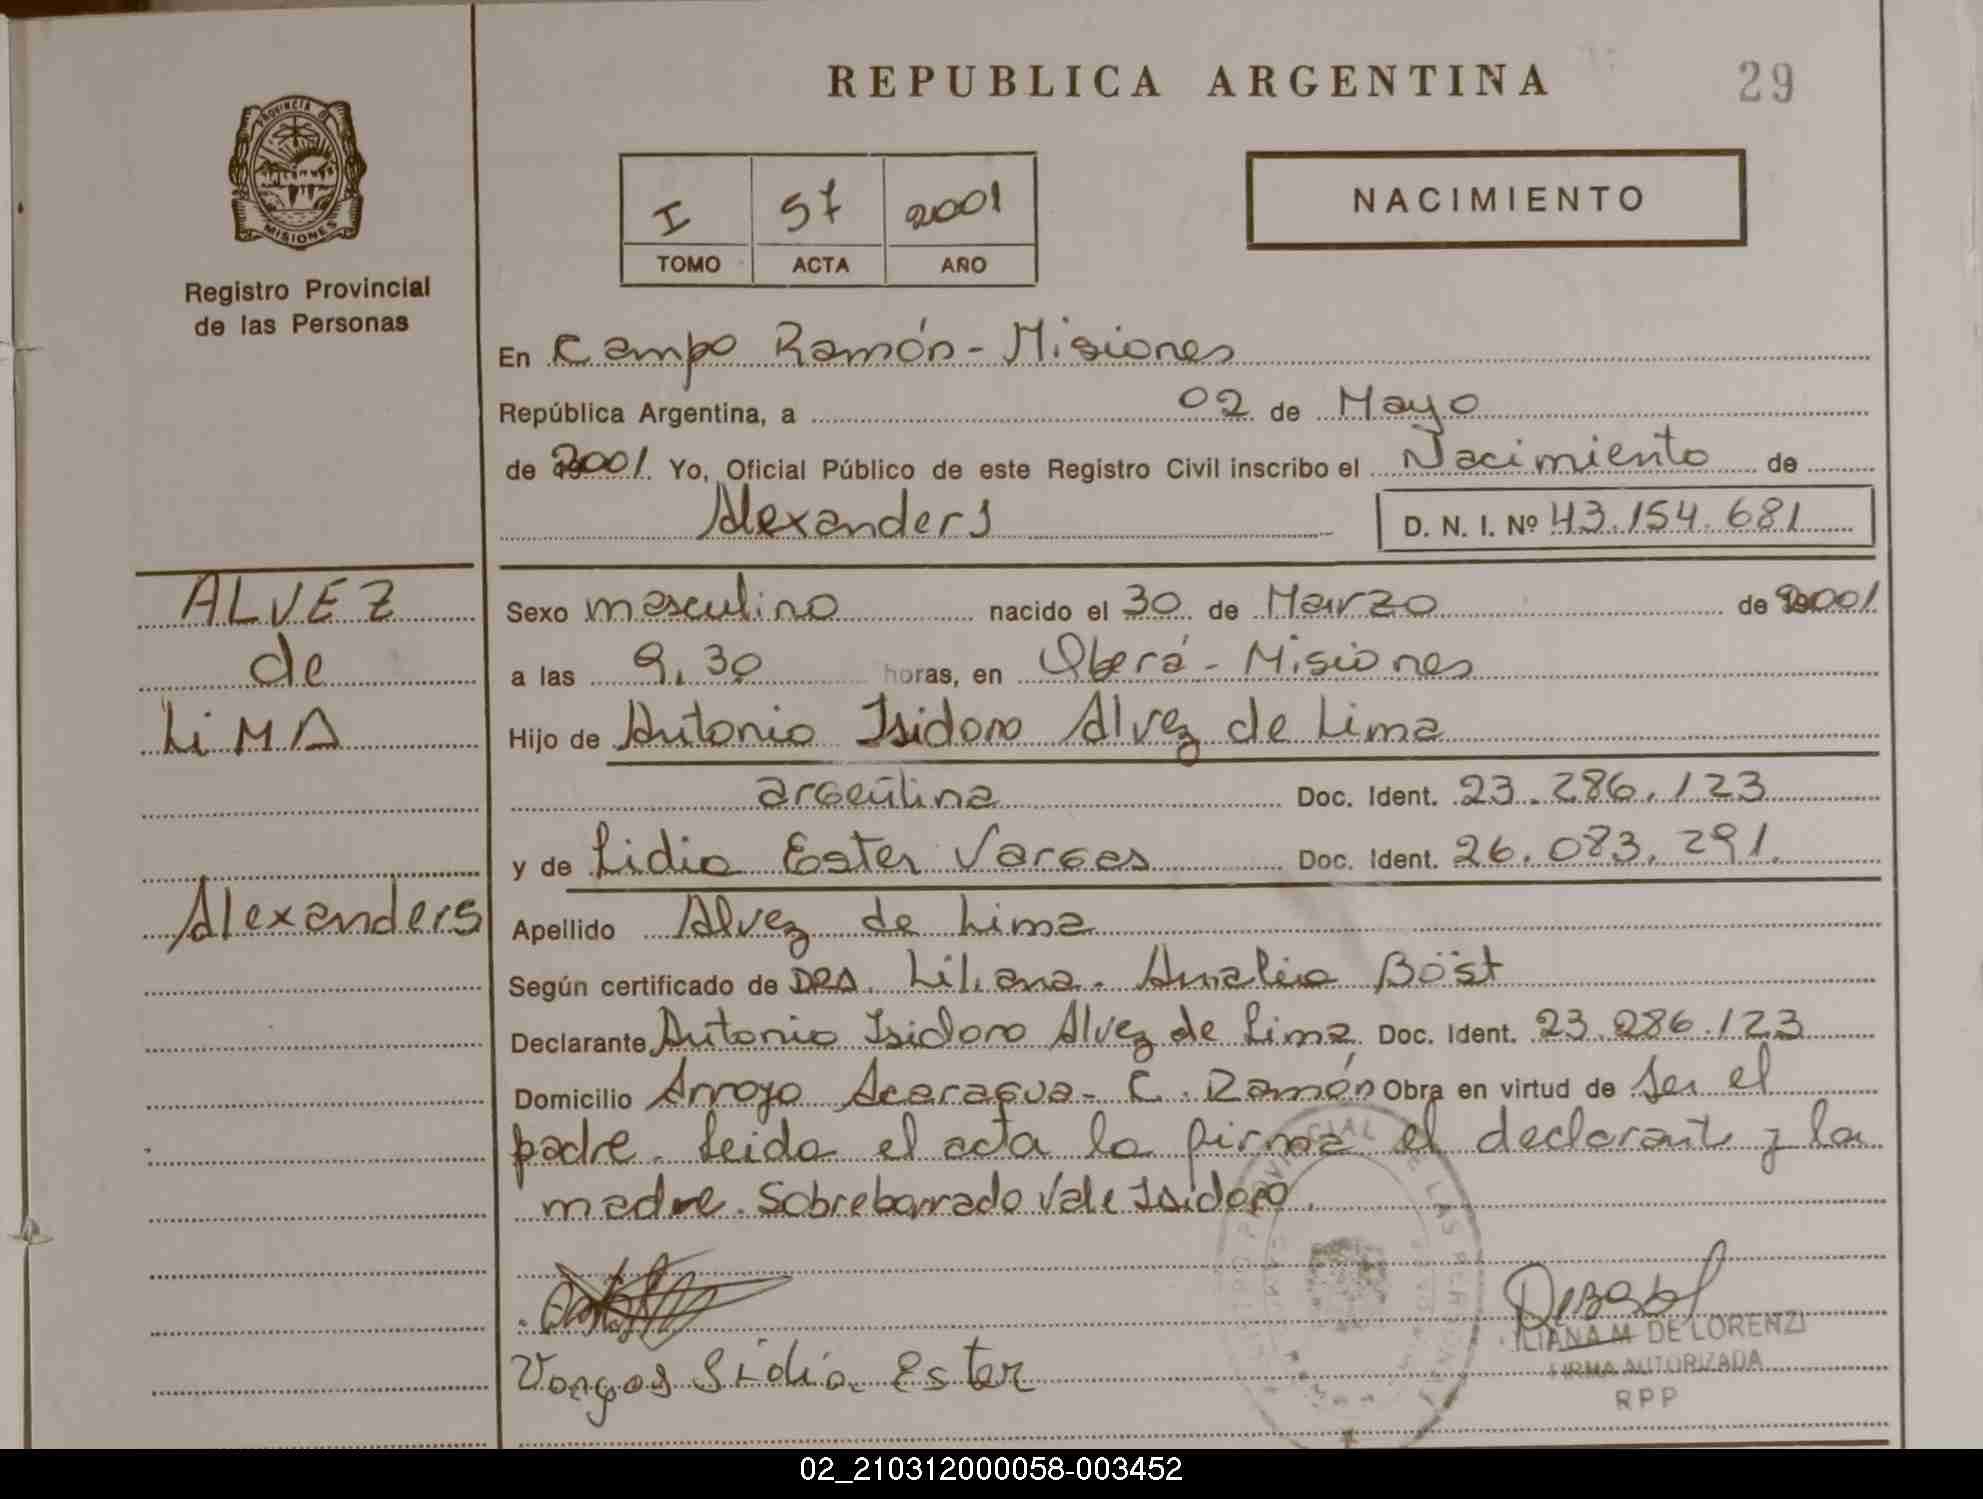 REPUBLICA ARGENTINA
29
PROVINCIA DE
MISIONES
Registro Provincial
de las Personas
I 57 2001
TOMO ACTA AÑO
NACIMIENTO
En Campo Ramón - Misiones
República Argentina, a 02 de Mayo
de 2001. Yo, Oficial Público de este Registro Civil inscribo el Nacimiento de
Alexanders D. N. I. Nº 43.154.681
ALVEZ
de
LiMA
Alexanders
Sexo masculino nacido el 30 de Marzo de 2001
a las 9,30 horas, en Oberá - Misiones
Hijo de Antonio Isidoro Alvez de Lima
argentina Doc. Ident. 23.286.123
y de Lidia Ester Vargas Doc. Ident. 26.083.291.
Apellido Alvez de Lima
Según certificado de DRA. Liliana. Amalia Böst
Declarante Antonio Isidoro Alvez de Lima Doc. Ident. 23.286.123
Domicilio Arroyo Acaragua - C. Ramón Obra en virtud de Ser el
padre. Leida el acta la firma el declarante y la
madre. Sobreborrado Vale Isidoro.
Vargas Lidia Ester
ILIANA M DE LORENZI
FIRMA AUTORIZADA
RPP
02_210312000058-003452